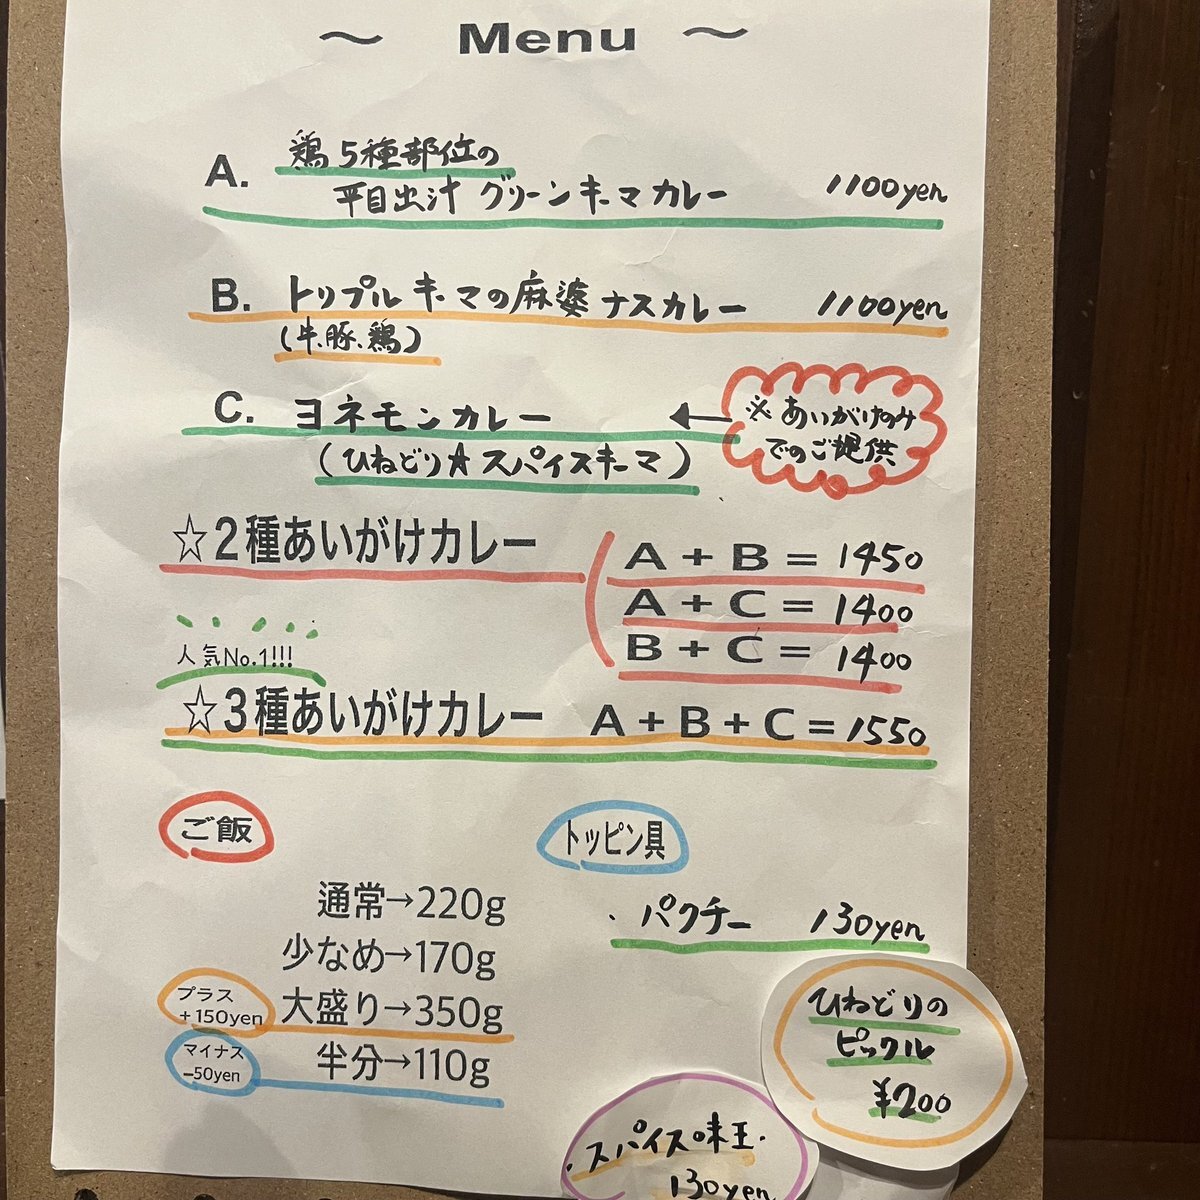 ～ Menu ～
A. 鶏5種部位の
平目出汁 グリーンキーマカレー 1100yen
B. トリプルキーマの麻婆ナスカレー 1100yen
(牛、豚、鶏)
C. ヨネモンカレー
(ひねどり★スパイスキーマ)
※あいがけのみ
でのご提供
☆2種あいがけカレー
A + B = 1450
A + C = 1400
B + C = 1400
人気No.1!!!
☆3種あいがけカレー A + B + C = 1550
ご飯
通常→220g
少なめ→170g
プラス
+150yen
大盛り→350g
マイナス
-50yen
半分→110g
トッピン具
・パクチー 130yen
ひねどりの
ピックル
¥200
・スパイス味玉・
130yen